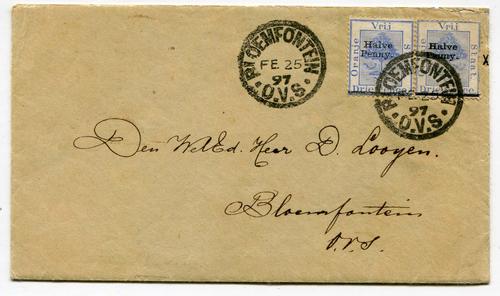 BLOEMFONTEIN
FE 25
97
O.V.S.
Vrij
Oranje
Staat
Halve
Penny.
Vrij
Oranje
Staat
Halve
Penny.
BLOEMFONTEIN
FE 25
97
O.V.S.
X
Den WelEd. Heer D. Looyen.
Bloemfontein
O.V.S.